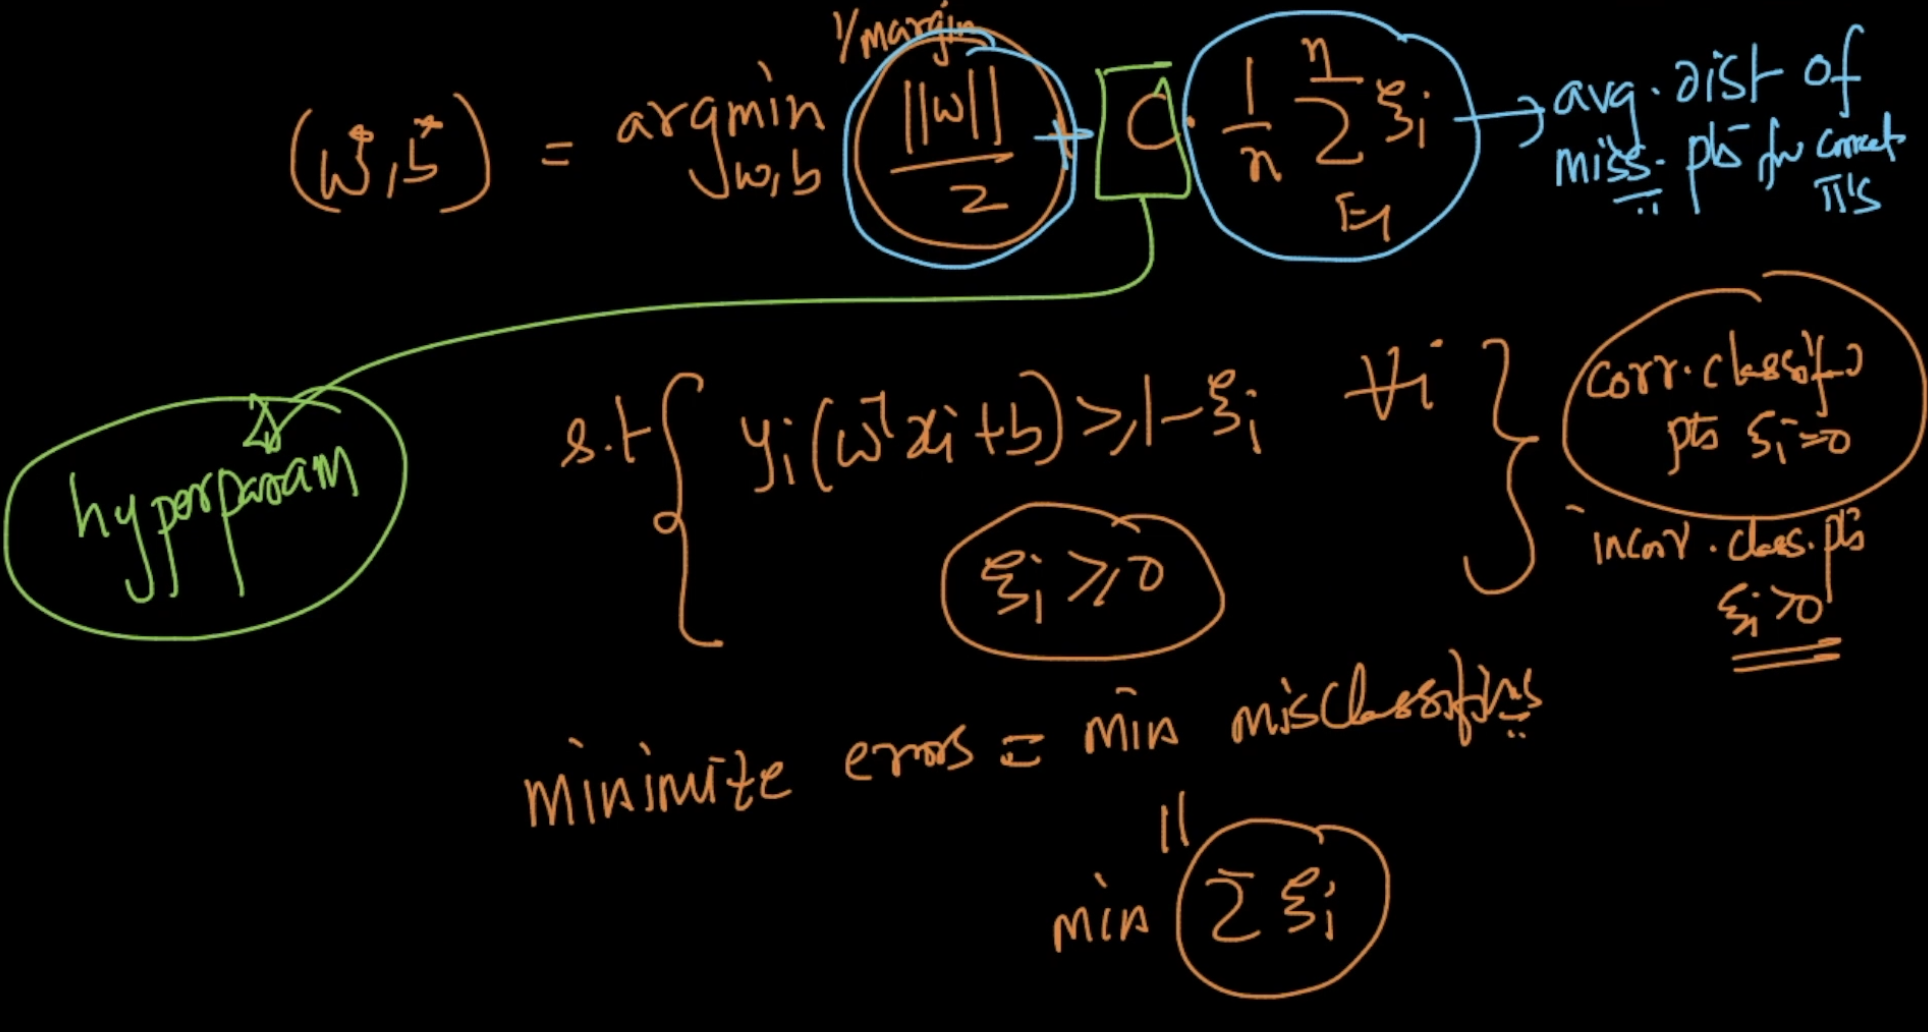 1/margin
(w*, b*) = argmin w,b ||w||/2 + C · 1/n Σ ξi → avg. dist of
n
i=1
miss. pts fw correct
π's
hyperparam
s.t { yi(wᵀxi + b) ≥ 1 - ξi ∀i }
ξi ≥ 0
corr. classified
pts ξi = 0
incorr. class. pts
ξi > 0
minimize errors = min misclassifins
||
min Σ ξi